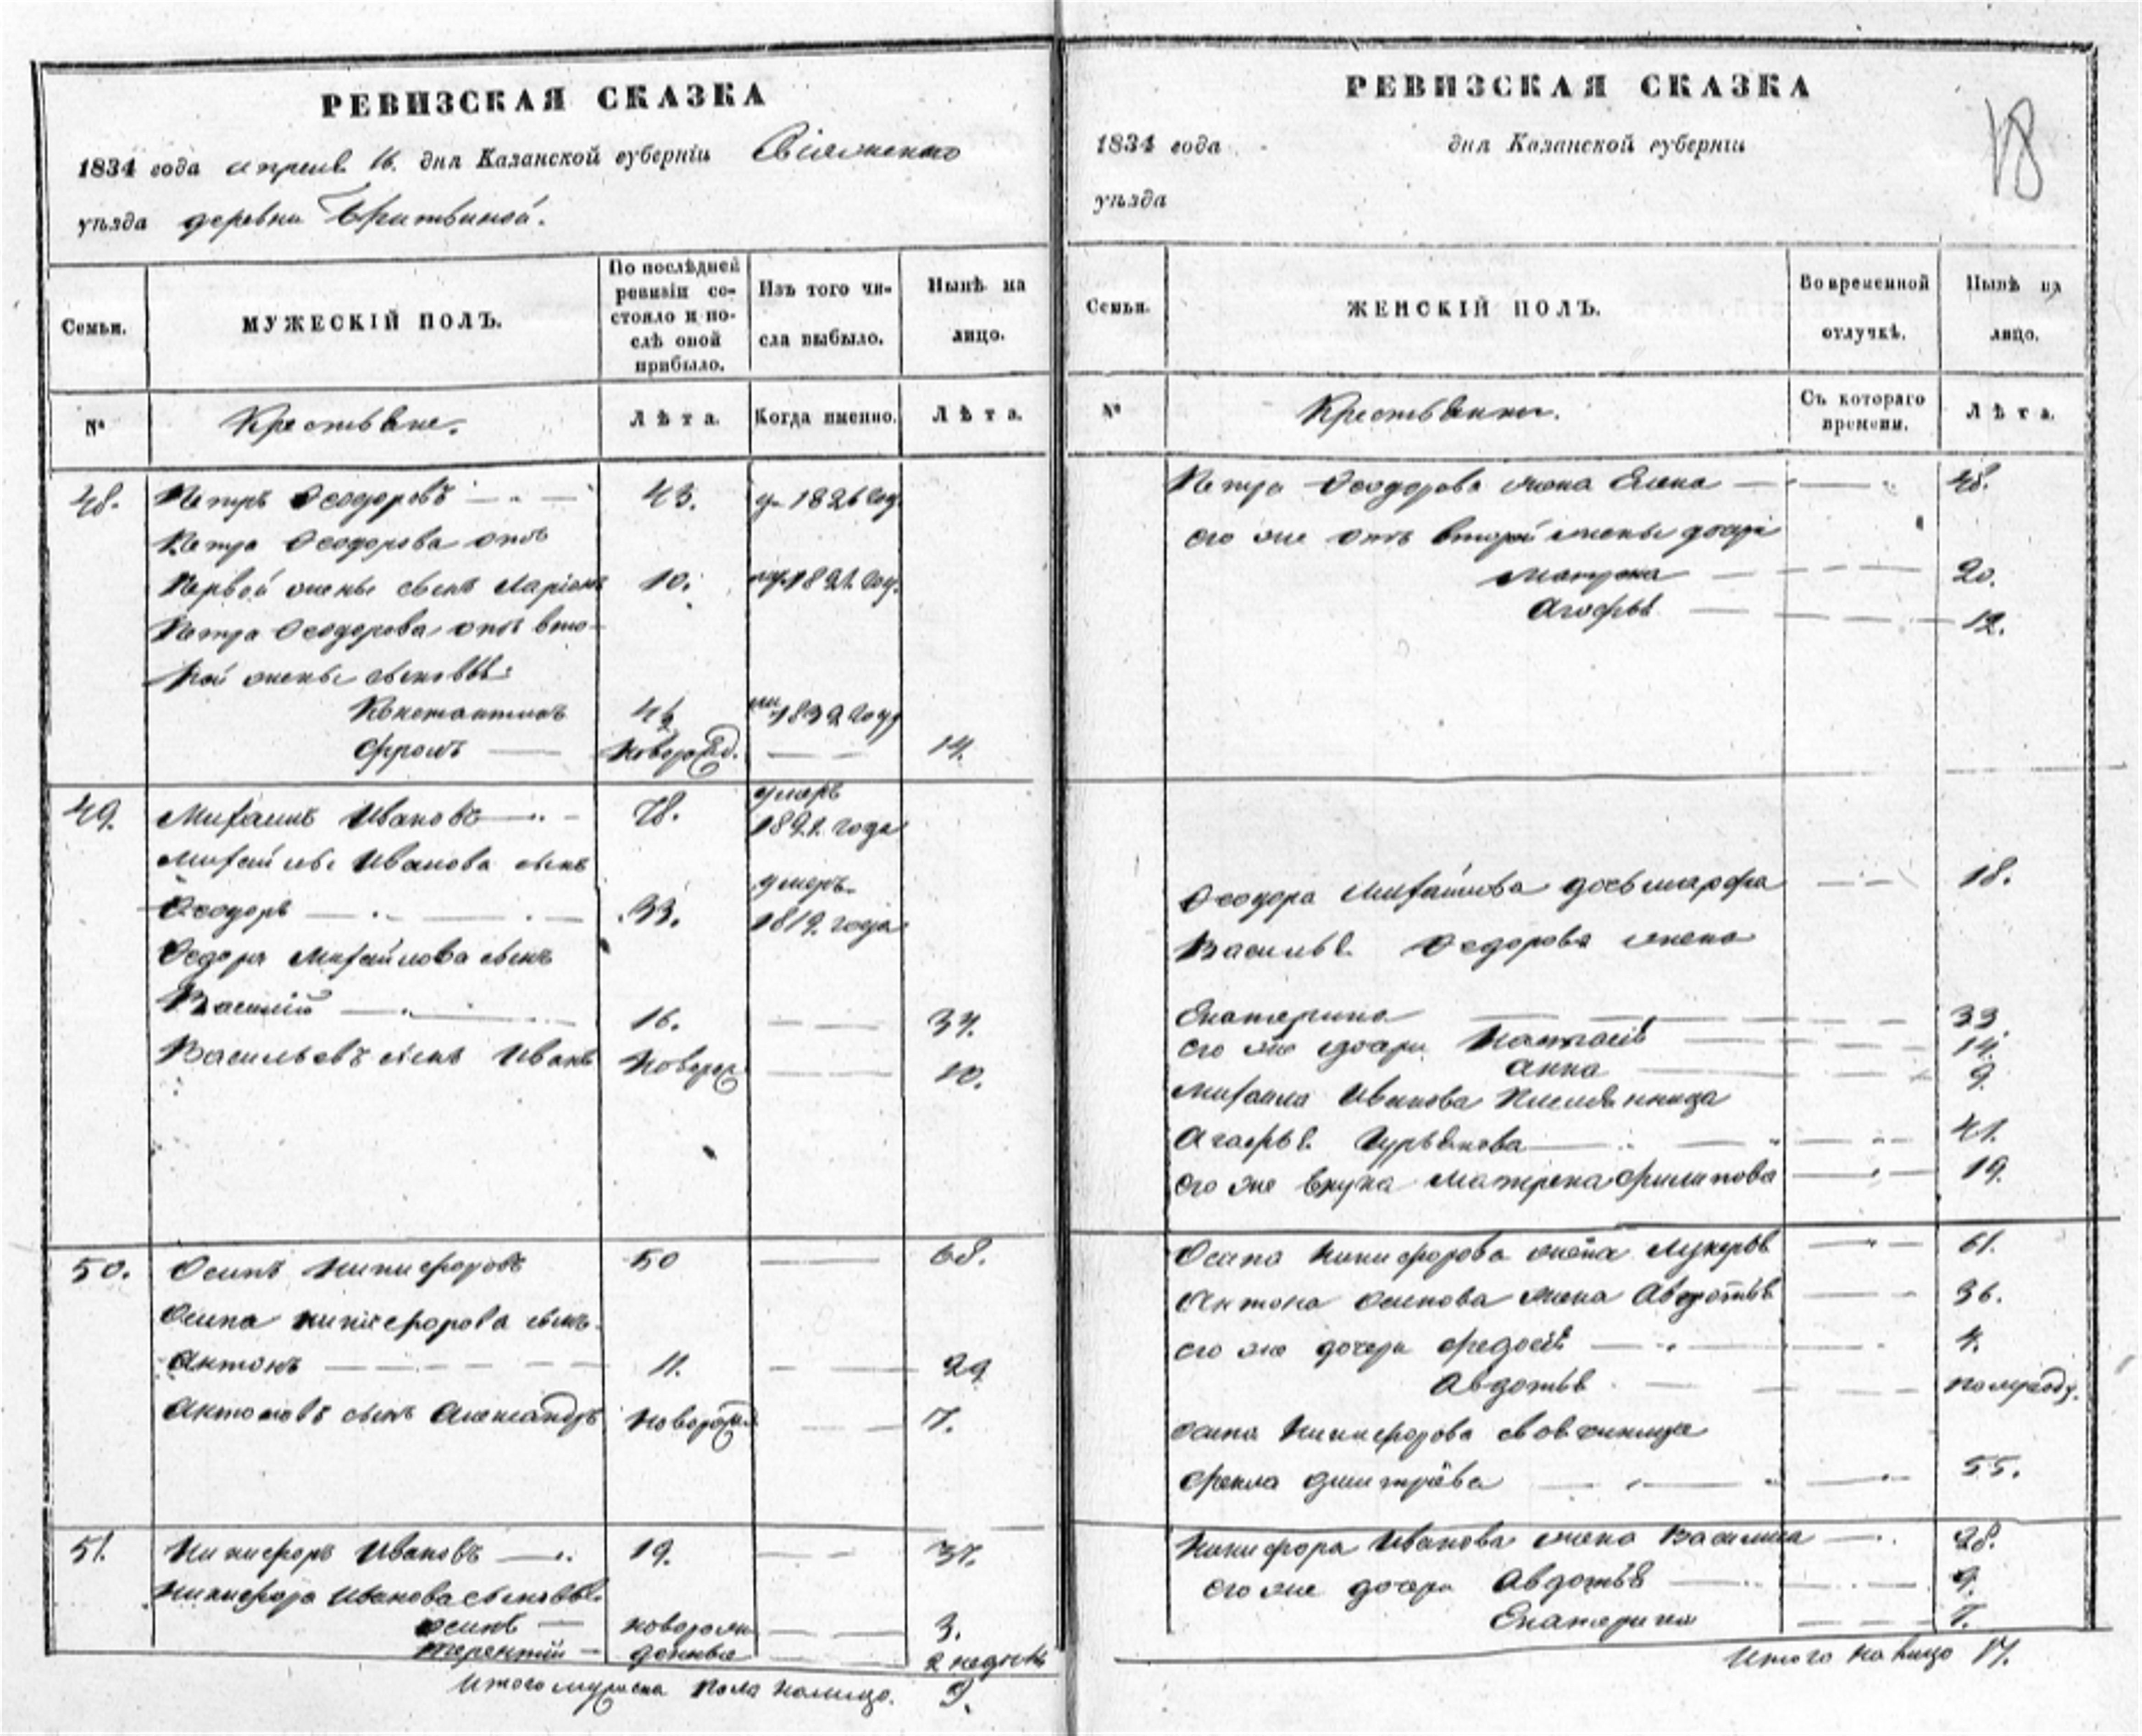 РЕВИЗСКАЯ СКАЗКА
1834 года апреля 16. дня Казанской губерніи
уѣзда деревни
Семьи.
МУЖЕСКІЙ ПОЛЪ.
По послѣдней
ревизіи со-
стояло и по-
слѣ оной
прибыло.
Изъ того чи-
сла выбыло.
Нынѣ на
лицо.
№
Крестьяне.
Лѣта.
Когда именно.
Лѣта.
48. Петръ Ѳеодоровъ 43. 1826 год.
Петра Ѳеодорова отъ
Первой жены сынъ Ларіонъ 10. 1821 год.
Петра Ѳеодорова отъ вто-
рой жены сыновья:
Константинъ 1832 году
Фролъ Новорожд. 14.
49. Михаилъ Ивановъ 78. умеръ 1821 года
Михайлы Иванова сынъ
Ѳеодоръ 33. умеръ 1819. года
Ѳедора Михайлова сынъ
Василій 16. 34.
Васильевъ сынъ Иванъ Новорож 10.
50. Осипъ Никифоровъ 50 68.
Осипа Никифорова сынъ
Антонъ 11. 29
Антоновъ сынъ Александръ Новорожд 7.
51. Никифоръ Ивановъ 19. 37.
Никифора Иванова сыновья
Осипъ новорож 3.
Терентій денные 2 недѣль
Итого мужеска пола налицо. 9.
РЕВИЗСКАЯ СКАЗКА
18
1834 года дня Казанской губерніи
уѣзда
Семьи.
ЖЕНСКІЙ ПОЛЪ.
Во временной
отлучкѣ.
Нынѣ на
лицо.
№
Крестьянки.
Съ котораго
времени.
Лѣта.
Петра Ѳеодорова жена Елена 48.
его же отъ второй жены дочери
Матрона 20.
Агафья 12.
Ѳеодора Михайлова дочь Марфа 18.
Василья Ѳедорова жена
Екатерина 33.
его же дочери Настасія 14.
Анна 9.
Михаила Иванова племянница
Агафья Гурьянова 41.
его же внука Матрена Филипова 19.
Осипа Никифорова жена Лукерья 61.
Антона Осипова жена Авдотья 36.
его же дочери Федосія 4.
Авдотья полугоду.
Осипа Никифорова своячиница
Фекла Дмитріева 55.
Никифора Иванова жена Василиса 28.
его же дочери Авдотья 9.
Екатерина 7.
Итого налицо 17.